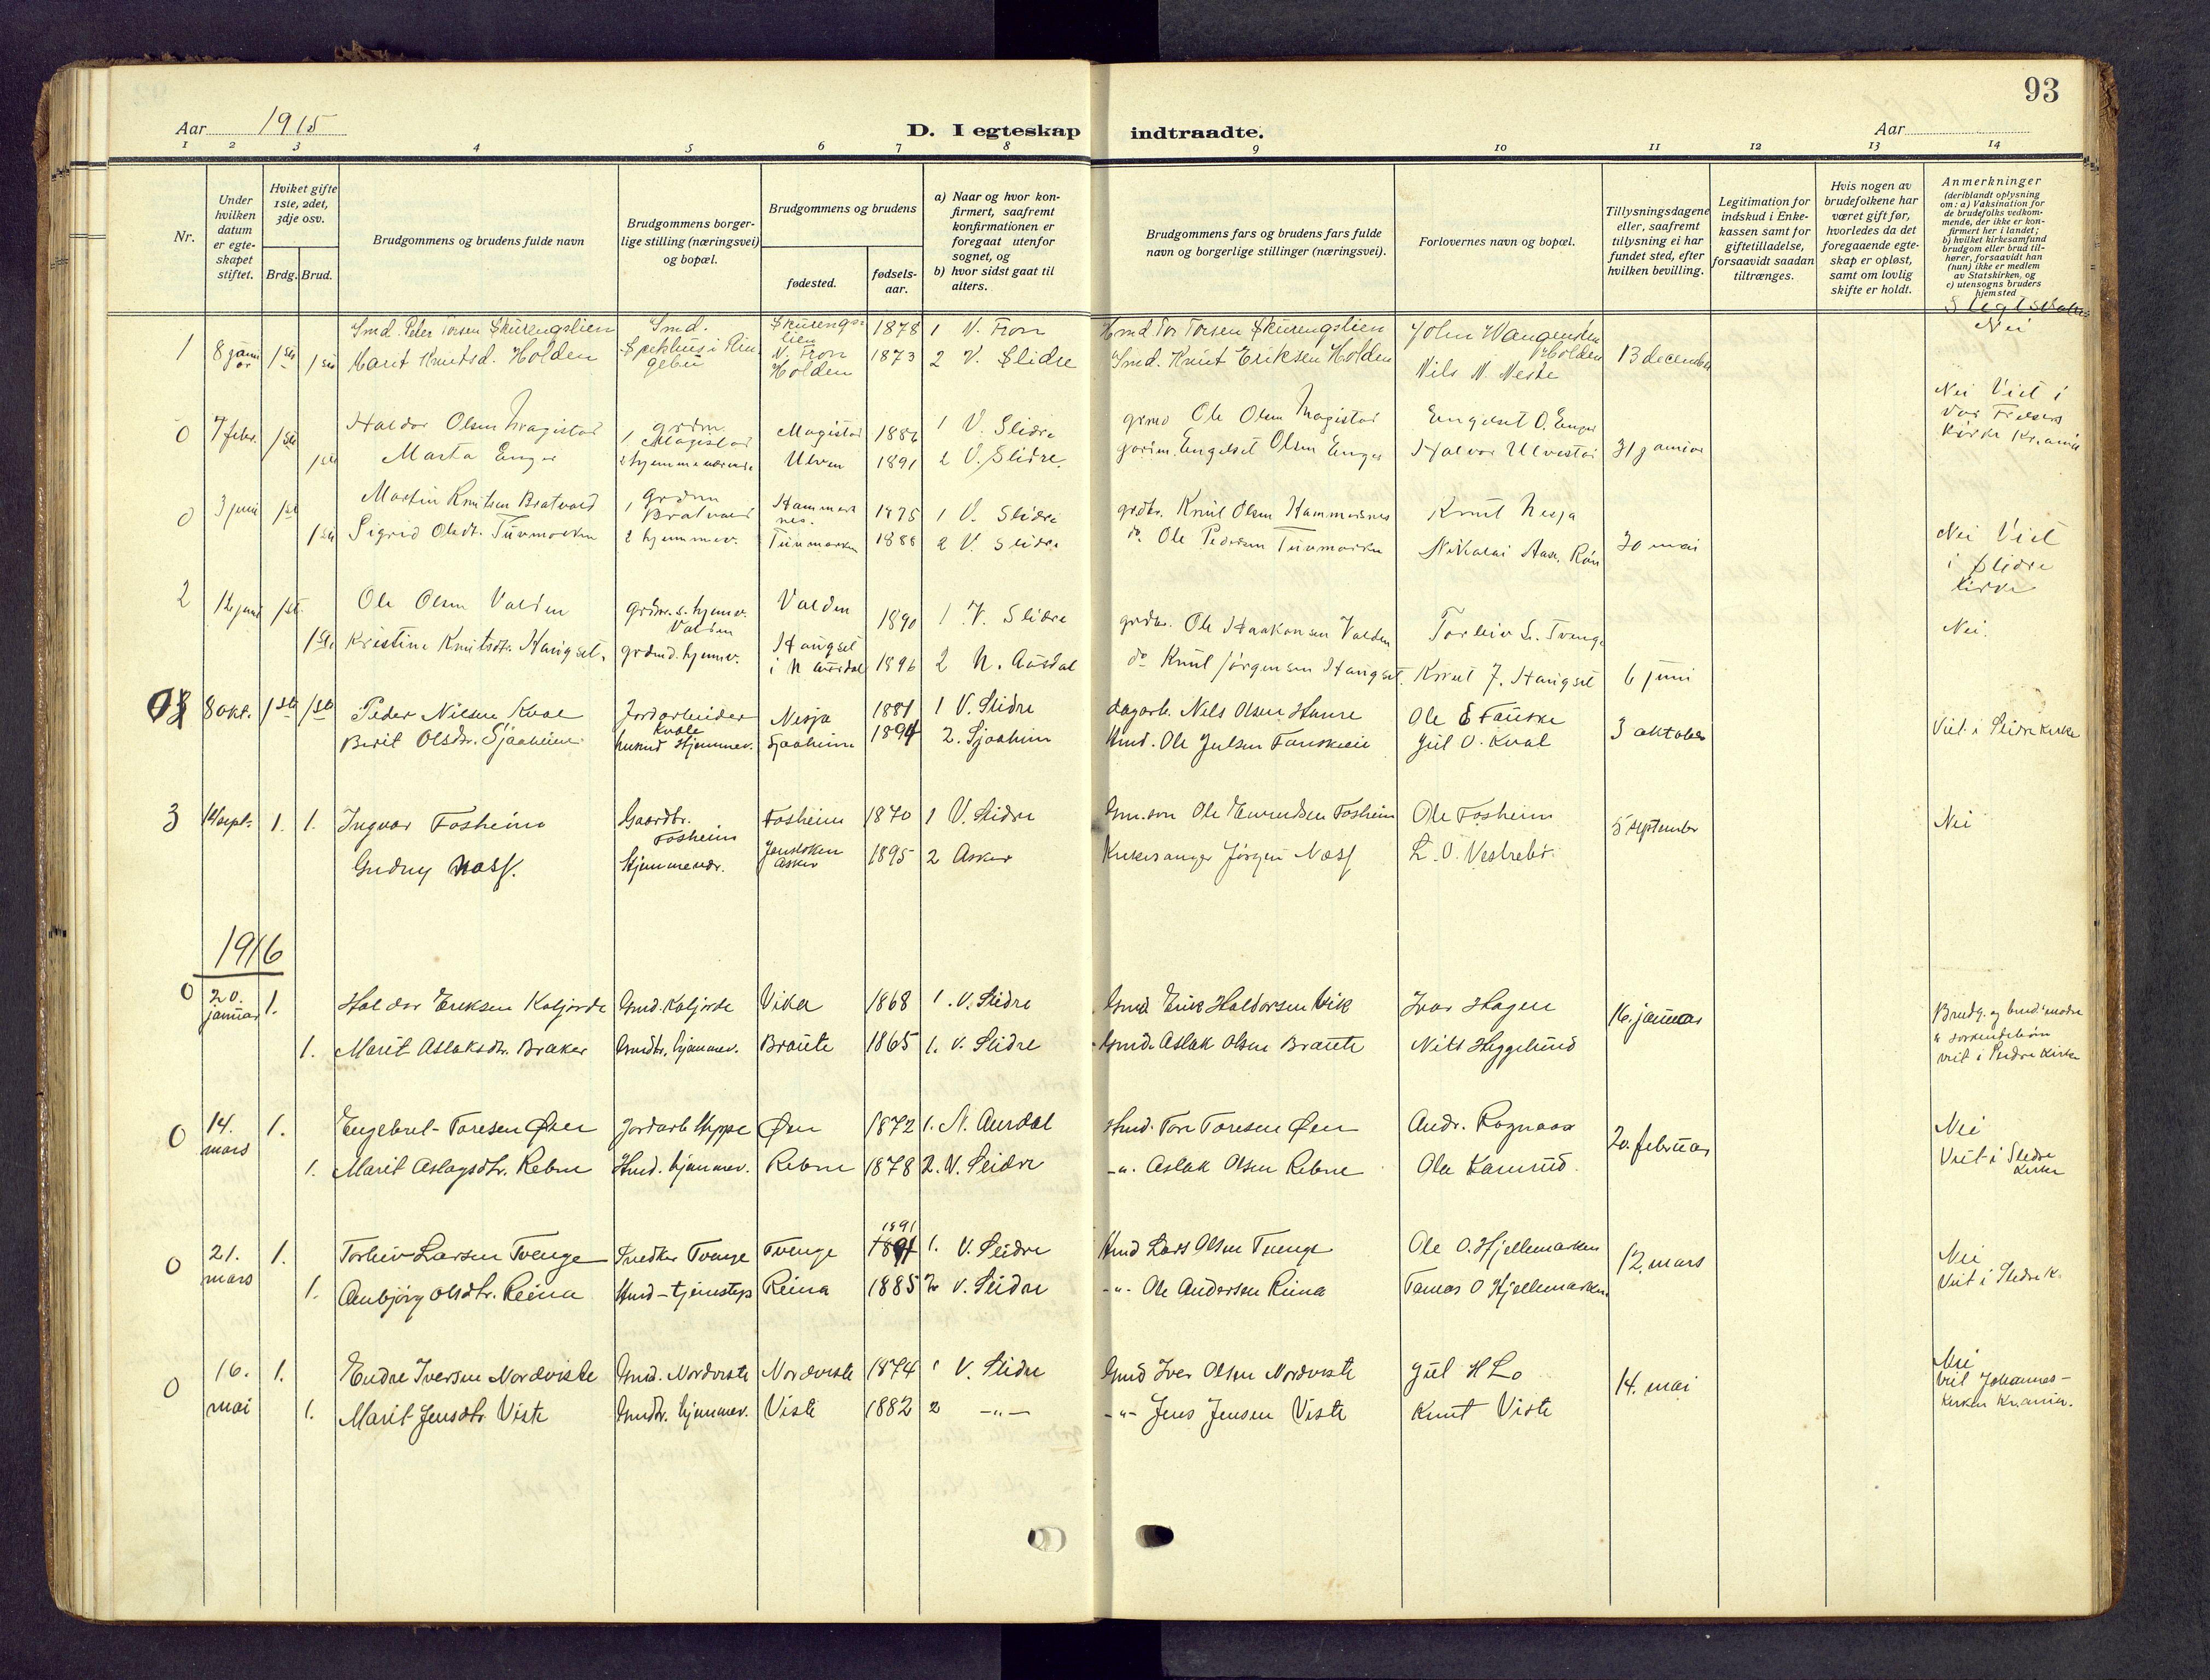 93
Aar 1915
D. I egteskap indtraadte.
Aar
1 2 3 4 5 6 7 8 9 10 11 12 13 14
Nr.
Under hvilken datum er egte-skapet stiftet.
Hviket gifte 1ste, 2det, 3dje osv.
Brdg. Brud.
Brudgommens og brudens fulde navn
Brudgommens borger-lige stilling (næringsvei) og bopæl.
Brudgommens og brudens
fødested.
fødsels-aar.
a) Naar og hvor kon-firmert, saafremt konfirmationen er foregaat utenfor sognet, og
b) hvor sidst gaat til alters.
Brudgommens fars og brudens fars fulde navn og borgerlige stillinger (næringsvei).
Forlovernes navn og bopæl.
Tillysningsdagene eller, saafremt tillysning ei har fundet sted, efter hvilken bevilling.
Legitimation for indskud i Enke-kassen samt for giftetilladelse, forsaavidt saadan tiltrænges.
Hvis nogen av brudefolkene har været gift før, hvorledes da det foregaaende egte-skap er opløst, samt om lovlig skifte er holdt.
Anmerkninger
(deriblandt oplysning om: a) Vaksination for de brudefolks vedkom-mende, der ikke er kon-firmert her i landet; b) hvilket kirkesamfund brudgom eller brud til-hører, forsaavidt han (hun) ikke er medlem av Statskirken, og c) utensogns bruders hjemsted
1 8 januar 1ste Smd. Peter Torsen Skurengslien Smd. Skurengslien N. Fron 1878 1 N. Fron Hmd Tor Torsen Skurengslien John Wangensten Holden 13 december Nei
1ste Marit Knutsd. Holden Holden 1873 2 V. Slidre Smd. Knut Eriksen Holden Nils N. Neste
0 7 febr. 1ste Haldor Olsen Magistad grdm Magistad Magistad 1886 1 V. Slidre grmd Ole Olsen Magistad Engelset O. Enger 31 januar Nei Viet i Vor Frelsers Kirke Kr.ania
1ste Marta Enger 2 hjemmeværende Ulven 1891 2 V. Slidre. Engelset Olsen Enger Halvor Ulvestad
0 3 juni 1ste Martin Knutsen Bratvold 1 grdm Bratvold Hammersnes. 1875 1 V. Slidre grdbr. Knut Olsen Hammersnes Knut Nesja 30 mai Nei Viet i Slidre kirke
1ste Sigrid Olsdt. Tuvmarken 2 hjemmev. Tuvmarken 1888 2 V. Slidre do. Ole Pedersen Tuvmarken Nikolai Aas, Røn
2 12 juni 1ste Ole Olsen Valden grdm. s. hjemmev. Valden Valden 1890 1 V. Slidre grdbr. Ole Haakonsen Valden Torleiv L. Tvenge 6 juni Nei.
1ste Kristine Knutsdt. Haugset. grdmd. hjemmev. Haugset i N Aurdal 1896 2 N. Aurdal do Knut Jørgensen Haugset. Knut J. Haugset
0 8 okt. 1ste 1ste Peder Nilsen Kval Jordarbeider Kvale Nesja 1881 1 V. Slidre dagarb. Nels Olsen Ole E Fauske 3 oktober Viet i Slidre kirke
Berit Olsdtr. Sjaaheim Hjemmev. Sjaaheim 1894 2. Sjaaheim Hmd. Ole Julsen Fauskeie Jul O. Kval
3 12 sept. 1. 1. Ingvar Fosheim Gaardbr. Fosheim Fosheim 1870 1 V. Slidre Gm.søn Ole Evendsen Fosheim Ole Fosheim 5 september Nei
Gudny Næss. Hjemmevær. Asker 1895 2 Asker Kirkesanger Jørgen Næss L. O. Vestrebø
1916
0 20. januar 1. Haldor Eriksen Kaljorde Gmd. Kaljorde Vika 1868 1. V. Slidre Gmd Erik Haldorsen Vik Ivar Hagen 16. januar Brudg. og brudens mødre er søskendebørn viet i Slidre Kirke
1. Marit Aslaksdtr. Braker Gmdtr. hjemmev. Braute 1865 1. V. Slidre Gmd. Aslak Olsen Braute Nils Heggelund
0 14. mars 1. Engebret Toresen Øen Jordarb Heppe Øen 1872 1. N. Aurdal Hmd. Tore Toresen Øen Andr. Rognaas 20. februar Nei Viet i Slidre Kirke
1. Marit Aslagsdtr. Rebne Hmd. hjemmev. Rebne 1878 2. V. Slidre -"- Aslak Olsen Rebne Ola Kamrud.
0 21. mars 1. Torleiv Larsen Tvenge Snedker Tvenge Tvenge 1891 1891 1. V. Slidre Hmd Lars Olsen Tvenge Ole O. Hjellemarken 12. mars Nei Viet i Slidre K.
1. Anbjørg Olsdtr. Reina Hmd-tjenestep Reina 1885 2 V. Slidre -"- Ole Andersen Reina Tomas O Hjellemarken
0 16. mai 1. Endre Iversen Nordviste Gmd. Nordviste Nordviste 1874 1 V. Slidre Gmd Iver Olsen Nordviste Jul H Lo 14. mai Nei Viet Johannes-Kirken Kr.ania.
1. Marit Jensdtr. Viste Gmdtr. hjemmev. Viste 1882 2 -"- -"- Jens Jensen Viste Knut Viste